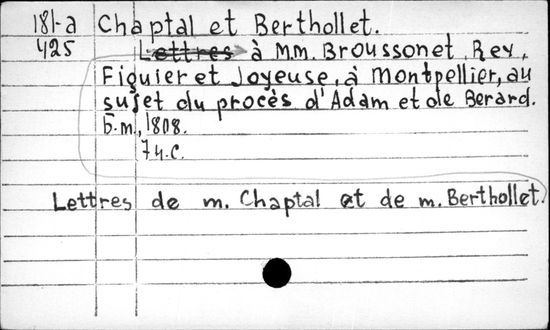 181-a Chaptal et Berthollet.
425 Lettres à M.M. Broussonet, Rey,
Figuier et Joyeuse, à Montpellier, au
sujet du procès d'Adam et de Berard.
S.m., 1808.
74.C.
Lettres de m. Chaptal et de m. Berthollet.